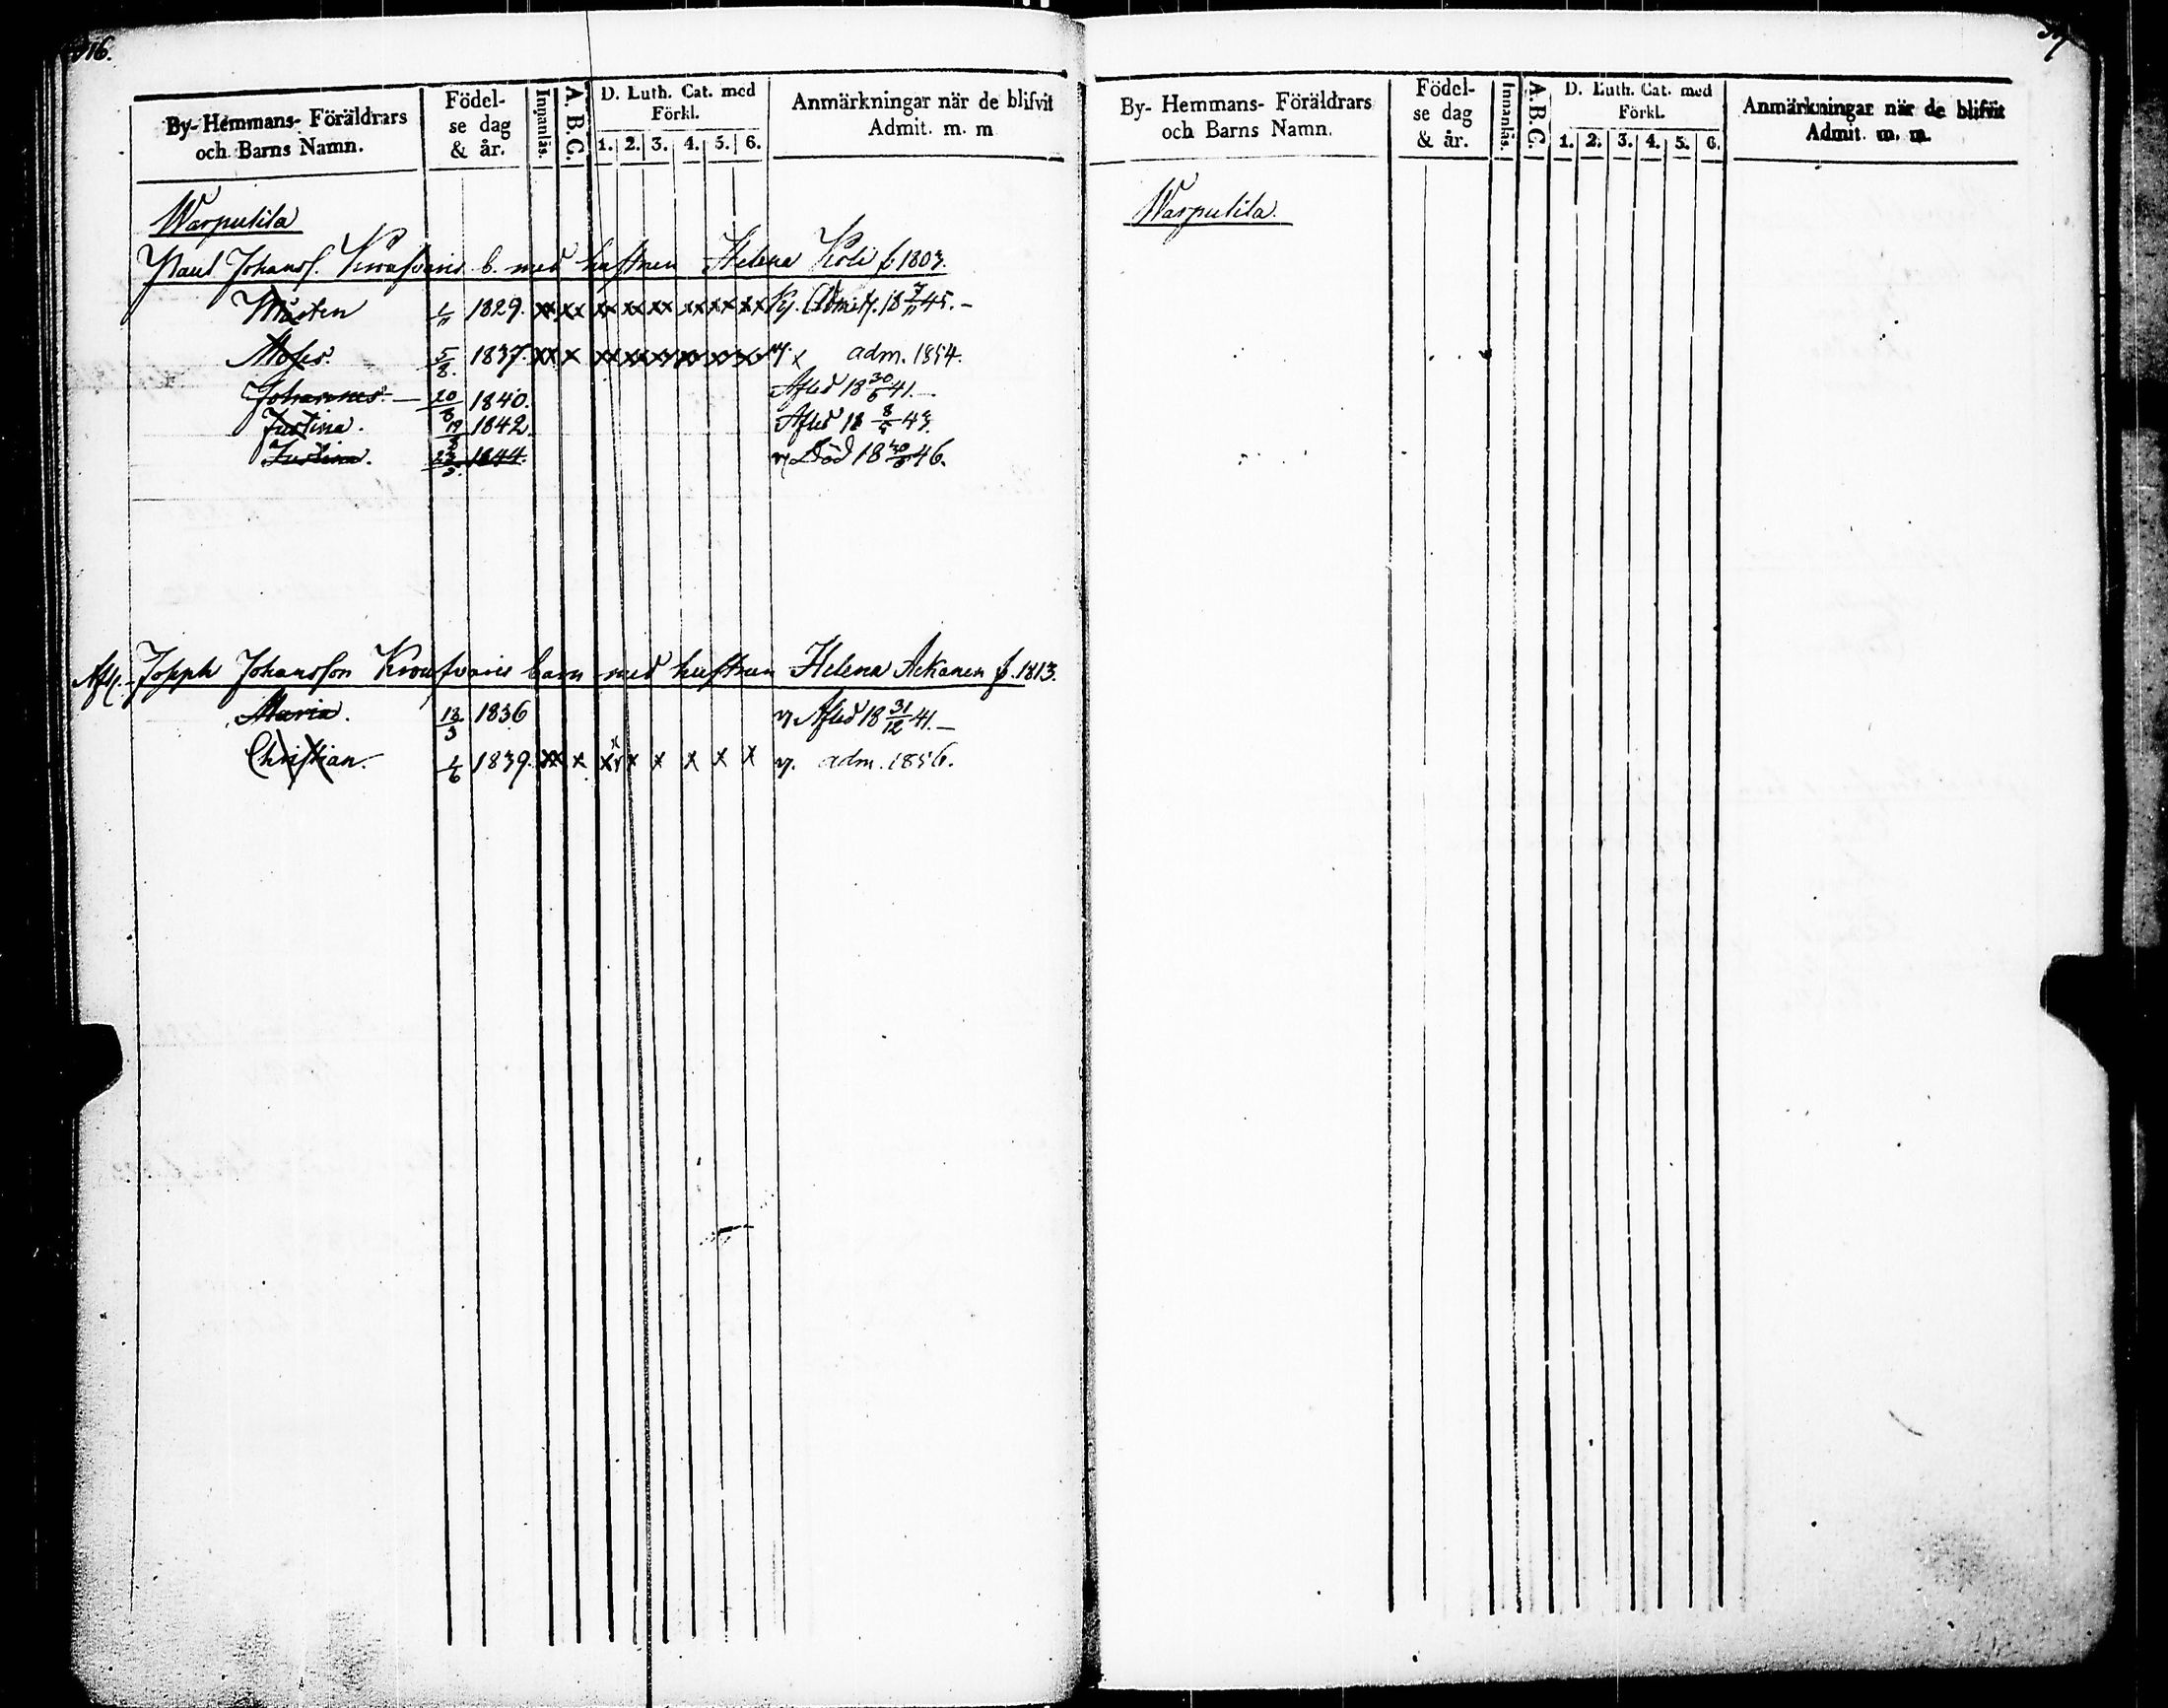 316.
By- Hemmans- Föräldrars och Barns Namn.
Födelse dag & år.
Innanläs.
A. B. C.
D. Luth. Cat. med Förkl.
1. 2. 3. 4. 5. 6.
Anmärkningar när de blifvit Admit. m. m
Warpulila
Paul Johanss. b. med hustrun Helena f 1803.
1/11 1829. xx xx xx xx xx xx xx xx 1845.-
Moses. 5/8. 1837. xx x xx xx xx xx xx xx x adm. 1854.
Johannes. 20/6 1840. Afled 18 30/6 41.-
Justina. 1842. Afled 18 43.
Justina. 1844. Död 18 46.
Afl. Joseph Johansson barn med hustrun Helena f. 1813.
Maria. 13/3 1836 Afled 18 31/12 41.-
Christian. 1/6 1839. xx x xx x x x x x adm. 1856.
By- Hemmans- Föräldrars och Barns Namn.
Födelse dag & år.
Innanläs.
A. B. C.
D. Luth. Cat. med Förkl.
1. 2. 3. 4. 5. 6.
Anmärkningar när de blifvit Admit. m. m.
Warpulila.